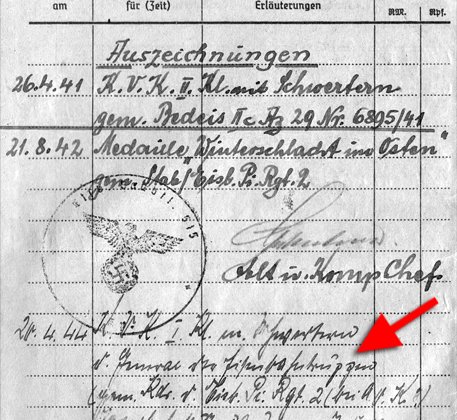 am für (Zeit) Erläuterungen RM. Rpf.
Auszeichnungen
26.4.41 K.V.K. II. Kl. mit Schwertern
gem. Bedeis II c Az 29 Nr. 6895/41
21.8.42 Medaille „Winterschlacht im Osten"
gem. Stab/Eisb. Pi. Rgt. 2
515
Oblt u. Komp Chef
20.4.44 K. V. K. I. Kl. m. Schwertern
d. General der Eisenbahntruppen
(gem. Kdr. d. Eisb. Pi. Rgt. 2